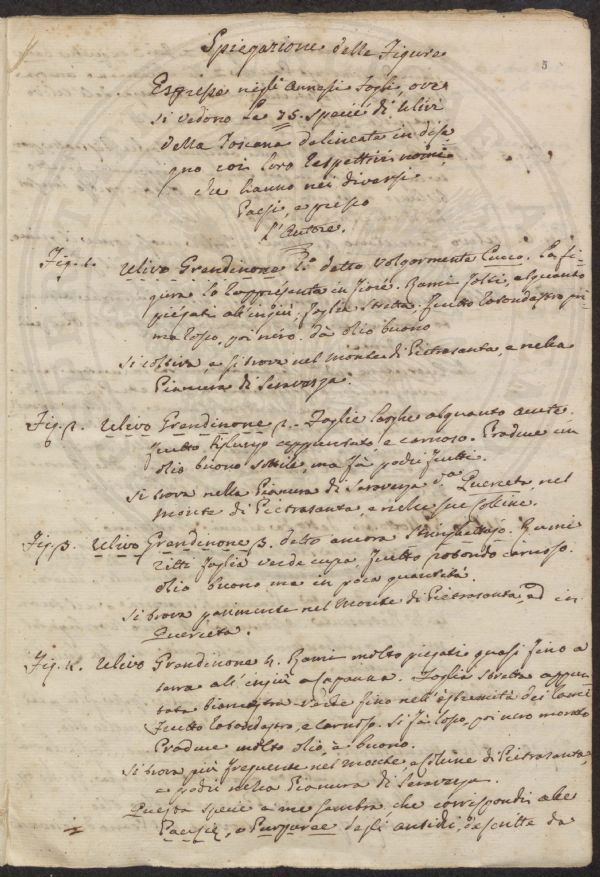 5
Spiegazione delle Figure
Espresse negli annessi fogli, ove
si vedono le 75. specie di Ulivi
della Toscana delineate in dise
gno coi loro respettivi nomi,
che hanno nei diversi
Paesi, e presso
l'Autore.
Fig. 1. Ulivo Grandinone 1º detto volgormente Cucco. La fi-
gura lo rappresenta in fiore. Rami folti, alquanto
piegati all'ingiù, foglia stretta, frutto rotondastro pri-
ma rosso, poi nero. dà olio buono
Si coltiva, e si trova nel monte di Pietrasanta, e nella
Pianura di Seravezza.
Fig. 2. Ulivo Grandinone 2. Foglie larghe alquanto acute.
Frutto, appuntato e carnoso. Produce un
olio buono sottile, ma fà pochi frutti.
Si trova nella Pianura di Seravezza da Querceta, nel
monte di Pietrasanta, e nelle sue Colline.
Fig. 3. Ulivo Grandinone 3. detto ancora Rami
ritti foglia verde cupa, frutto rotondo carnoso.
olio buono ma in poca quantità.
Si trova parimente nel Monte di Pietrasanta, ed in
Querceta.
Fig. 4. Ulivo Grandinone 4. Rami molto piegati quasi fino a
terra all'ingiù a Capanna. Foglia stretta appun
tata biancastra verde fino nell'estremità dei rami
Frutto rotondastro, e carnoso. Si fà rosso, poi nero morato
Produce molto olio, e buono.
Si trova più frequente nel monte, e colline di Pietrasanta,
e pochi nella Pianura di Seravezza.
Questa specie a me sembra che corrispondi alle
degli antichi, descritte da